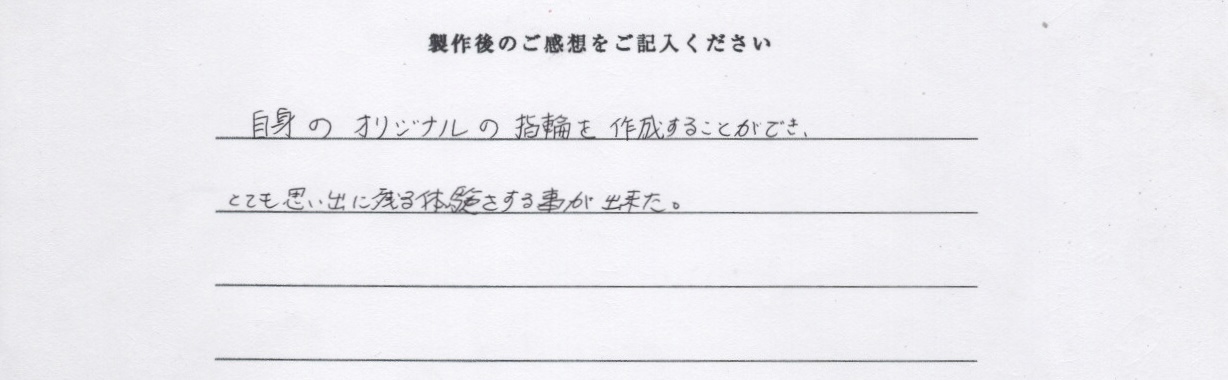 製作後のご感想をご記入ください
自身のオリジナルの指輪を作成することができ、
とても思い出に残る体験をする事が出来た。